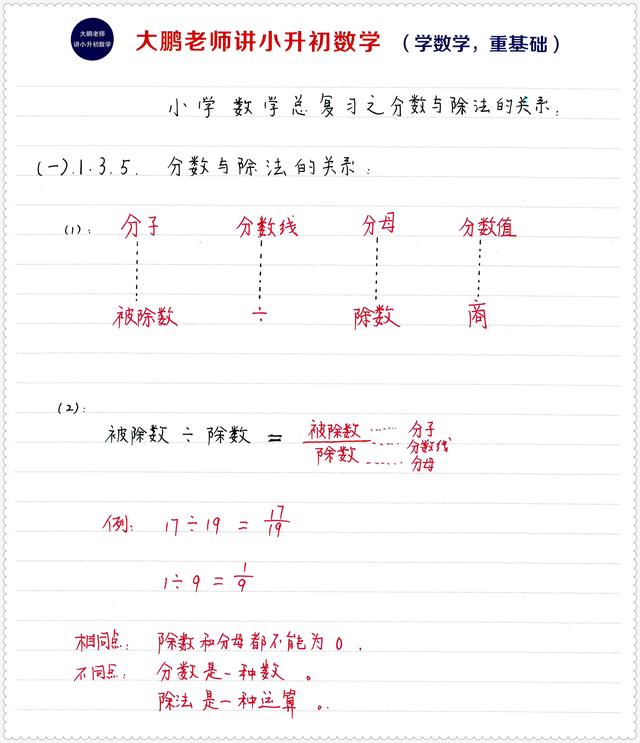 大鹏老师
讲小升初数学
大鹏老师讲小升初数学 （学数学，重基础）
小学数学总复习之分数与除法的关系：
(一).1.3.5. 分数与除法的关系：
(1)： 分子 分数线 分母 分数值
被除数 ÷ 除数 商
(2)：
被除数 ÷ 除数 = 被除数 …… 分子
…… 分数线
除数 …… 分母
例： 17÷19 = 17/19
1÷9 = 1/9
相同点： 除数和分母都不能为0.
不同点： 分数是一种数。
除法是一种运算。